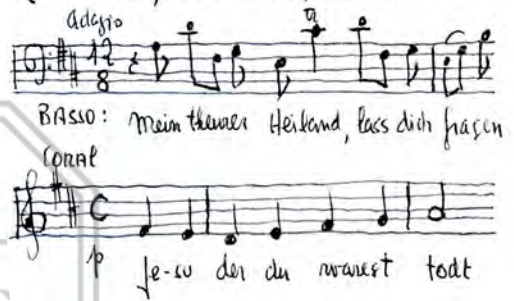 Adagio
12
8
tr
BASSO: Mein theurer Heiland, lass dich fragen
CORAL
C
p
Je-su der du warest todt